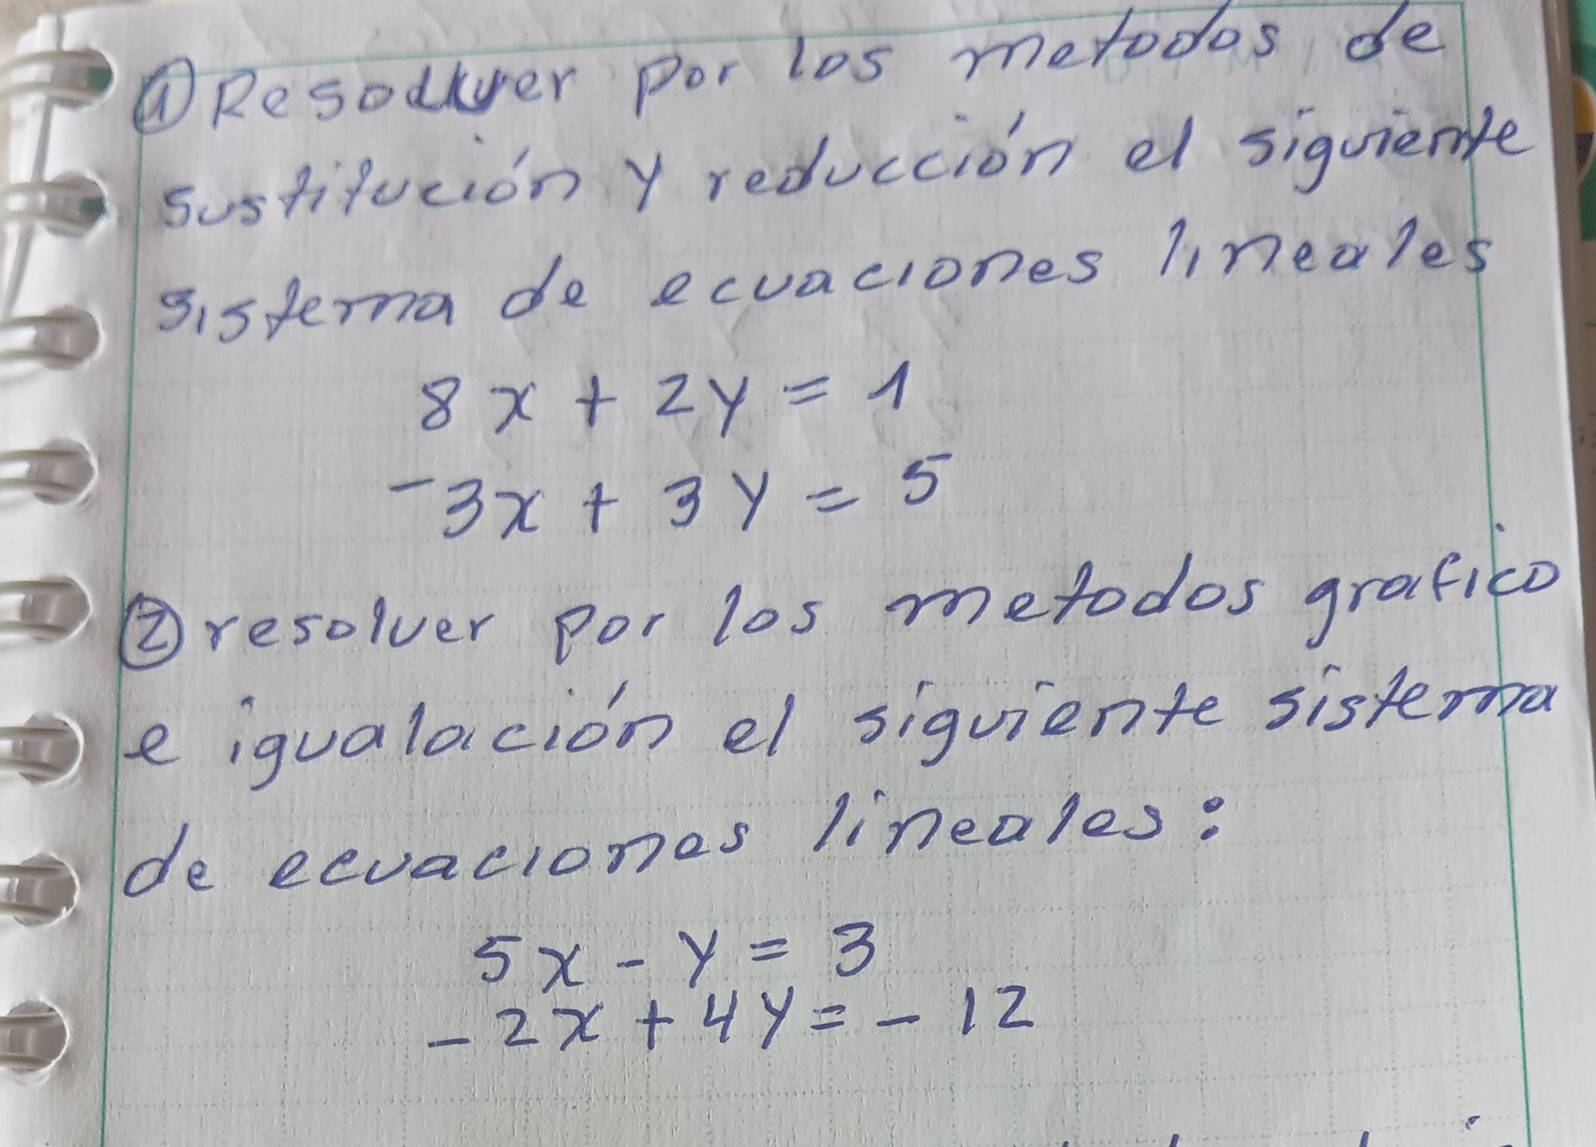 ① Resolver por los metodos de
sustitución y reducción el siguiente
sistema de ecuaciones lineales
8x + 2y = 1
-3x + 3y = 5
② resolver por los metodos grafico
e igualación el siguiente sistema
de ecuaciones lineales:
5x - y = 3
-2x + 4y = -12